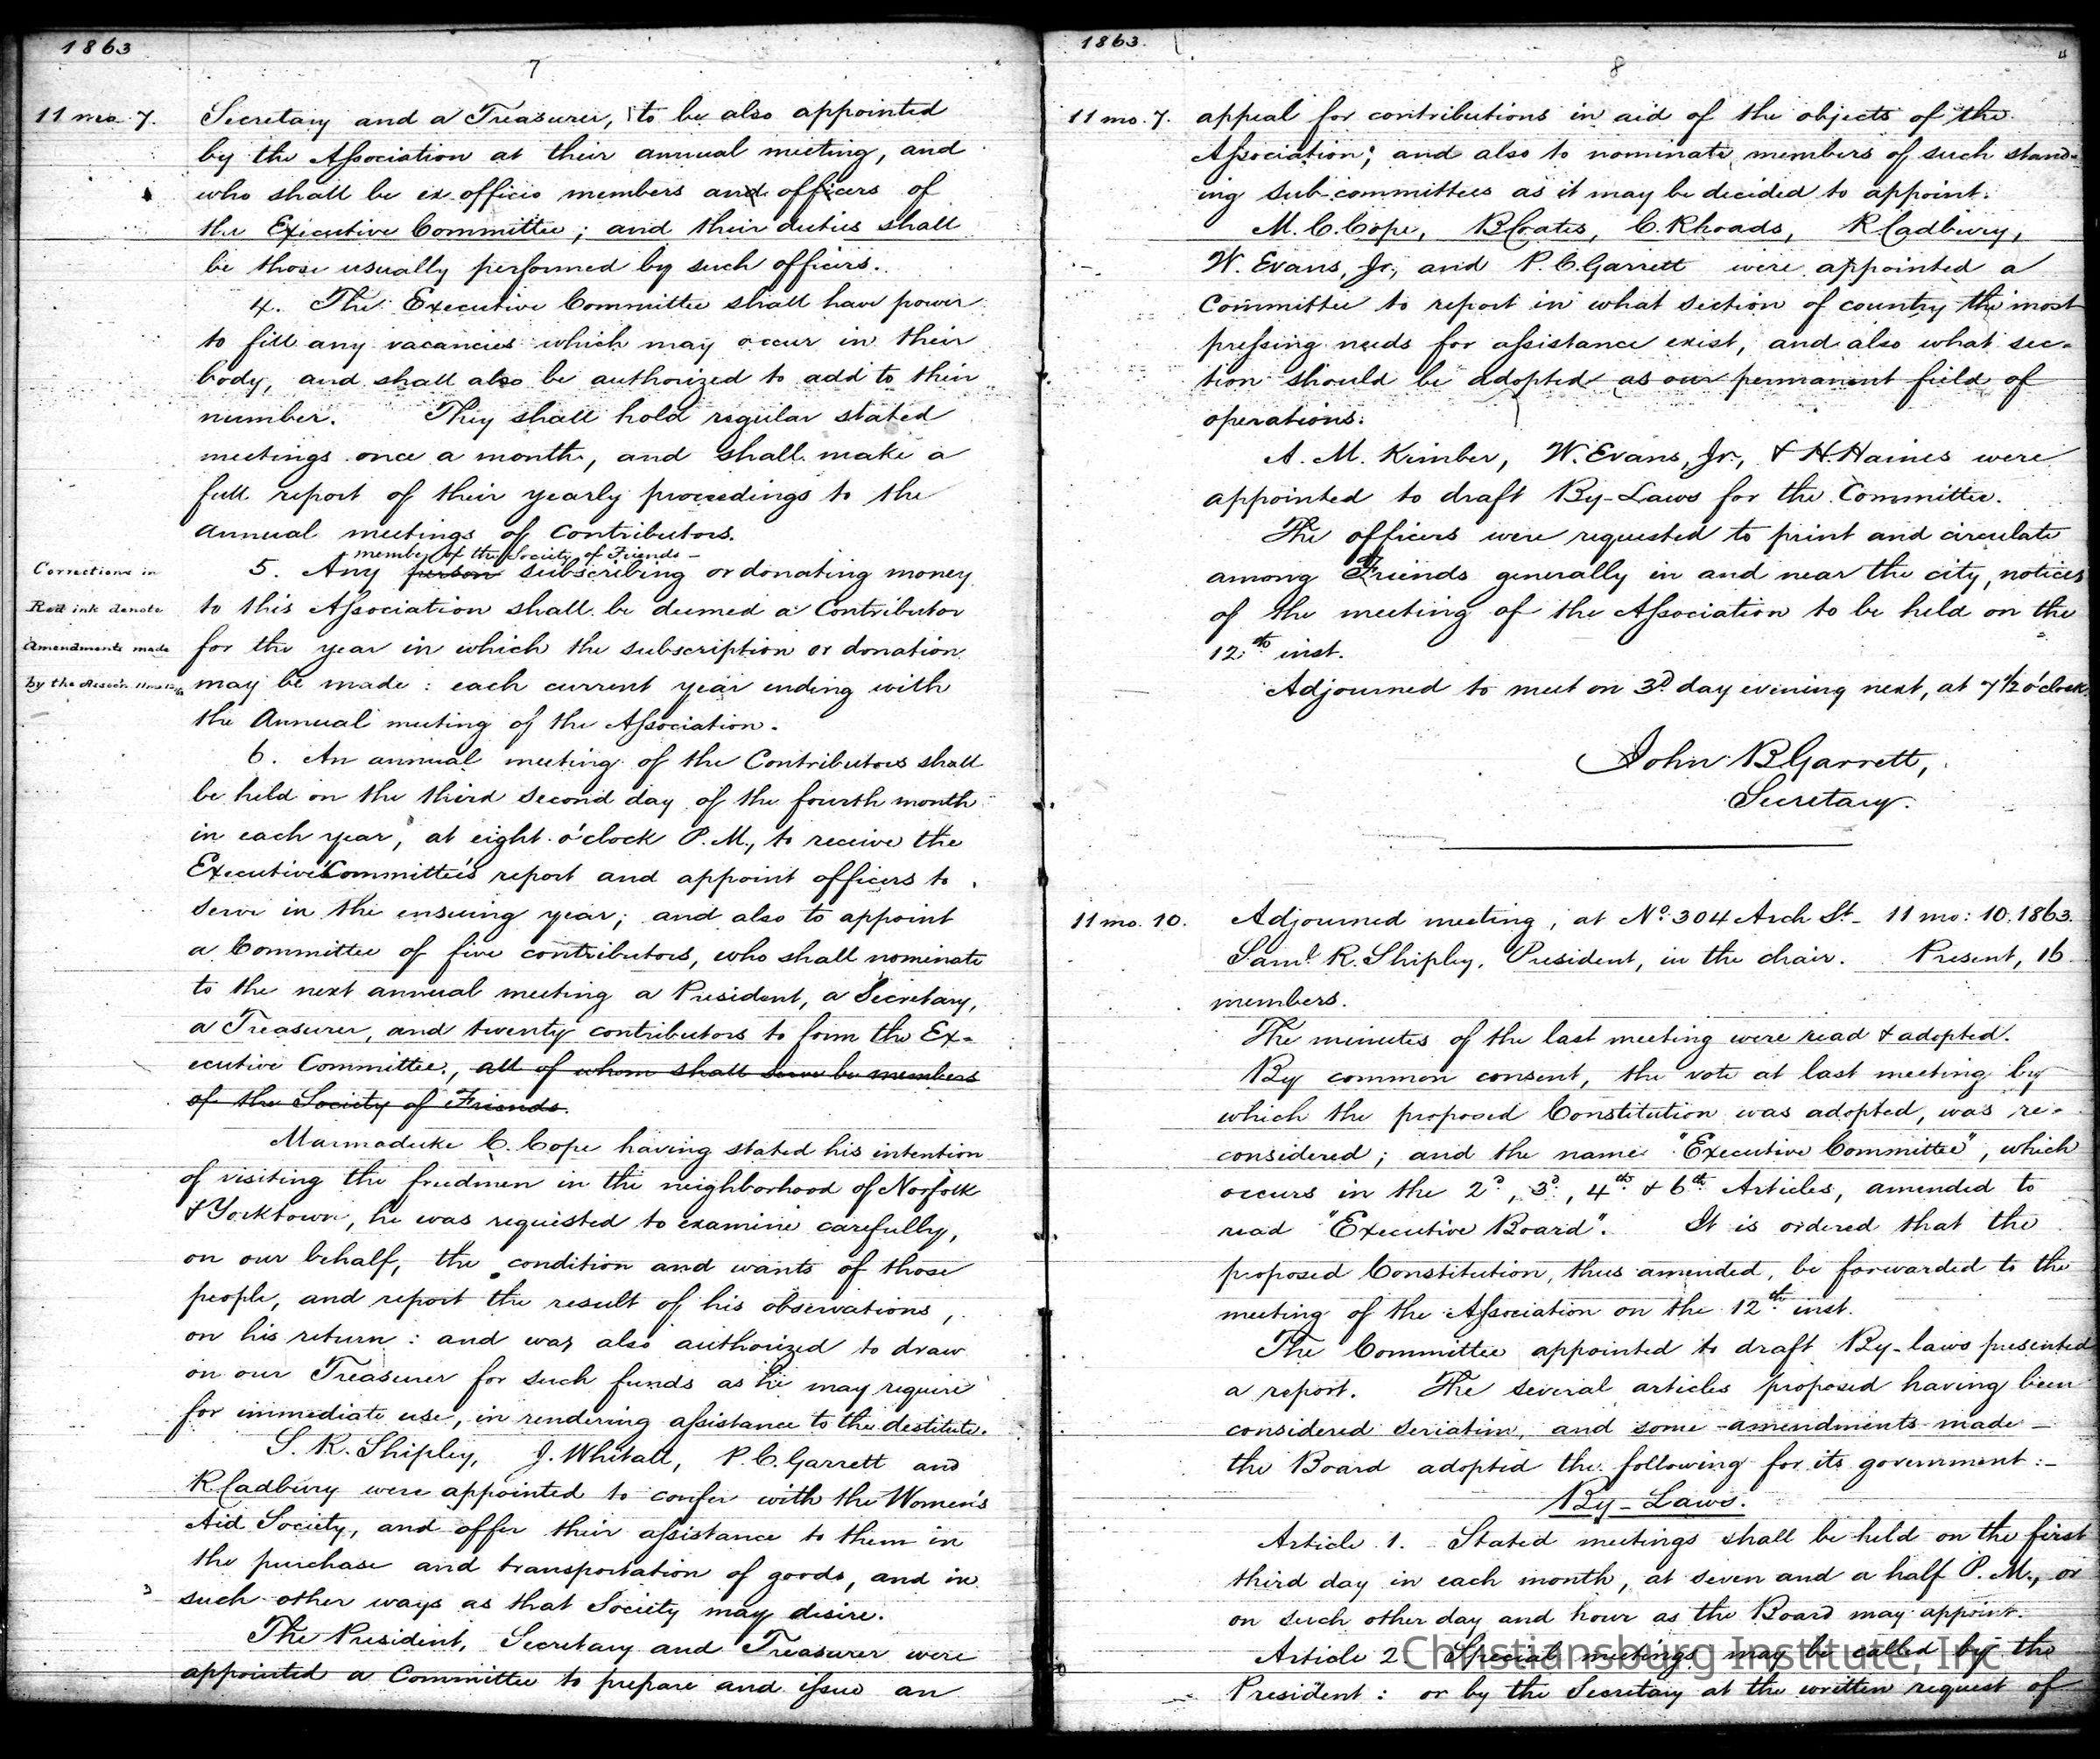 1863
7
11 mo. 7. Secretary and a Treasurer, to be also appointed
by the Association at their annual meeting, and
who shall be ex officio members and officers of
the Executive Committee; and their duties shall
be those usually performed by such officers.
4. The Executive Committee shall have power
to fill any vacancies which may occur in their
body, and shall also be authorized to add to their
number. They shall hold regular stated
meetings once a month, and shall make a
full report of their yearly proceedings to the
Annual meetings of Contributors.
member of the Society of Friends -
Corrections in 5. Any person subscribing or donating money
Red ink denote to this Association shall be deemed a Contributor
Amendments made for the year in which the subscription or donation
by the Assocn may be made: each current year ending with
the Annual meeting of the Association.
6. An annual meeting of the Contributors shall
be held on the third Second day of the fourth month
in each year, at eight o'clock P.M., to receive the
Executive Committee's report and appoint officers to
serve in the ensuing year; and also to appoint
a Committee of five contributors, who shall nominate
to the next annual meeting a President, a Secretary,
a Treasurer, and twenty contributors to form the Ex-
ecutive Committee, all of whom shall serve be members
of the Society of Friends.
Marmaduke C. Cope having stated his intention
of visiting the freedmen in the neighborhood of Norfolk
& Yorktown, he was requested to examine carefully,
on our behalf, the condition and wants of those
people, and report the result of his observations,
on his return: and was also authorized to draw
on our Treasurer for such funds as he may require
for immediate use, in rendering assistance to the destitute.
S. R. Shipley, J. Whitall, P. C. Garrett and
R Cadbury were appointed to confer with the Women's
Aid Society, and offer their assistance to them in
the purchase and transportation of goods, and in
such other ways as that Society may desire.
The President, Secretary and Treasurer were
appointed a Committee to prepare and issue an
1863.
8
11 mo. 7. appeal for contributions in aid of the objects of the
Association; and also to nominate members of such stand-
ing sub-committees as it may be decided to appoint.
M. C. Cope, B Coates, C. Rhoads, R Cadbury,
W. Evans, Jr., and P. C. Garrett were appointed a
Committee to report in what section of country the most
pressing needs for assistance exist, and also what sec-
tion should be adopted as our permanent field of
operations.
A. M. Kimber, W. Evans, Jr., & H. Haines were
appointed to draft By-Laws for the Committee.
The officers were requested to print and circulate
among Friends generally in and near the city, notices
of the meeting of the Association to be held on the
12th inst.
Adjourned to meet on 3d day evening next, at 7 1/2 o'clock.
John B Garrett,
Secretary.
11 mo. 10. Adjourned meeting, at No. 304 Arch St - 11 mo: 10. 1863.
Saml R. Shipley, President, in the chair. Present, 16
members.
The minutes of the last meeting were read & adopted.
By common consent, the vote at last meeting by
which the proposed Constitution was adopted, was re-
considered; and the name "Executive Committee", which
occurs in the 2d, 3d, 4th & 6th Articles, amended to
read "Executive Board". It is ordered that the
proposed Constitution, thus amended, be forwarded to the
meeting of the Association on the 12th inst.
The Committee appointed to draft By-laws presented
a report. The several articles proposed having been
considered seriatim, and some amendments made -
the Board adopted the following for its government:-
By-Laws.
Article 1. Stated meetings shall be held on the first
third day in each month, at seven and a half P.M., or
on such other day and hour as the Board may appoint.
Article 2. Special meetings may be called by the
President: or by the Secretary at the written request of
Christiansburg Institute, Inc